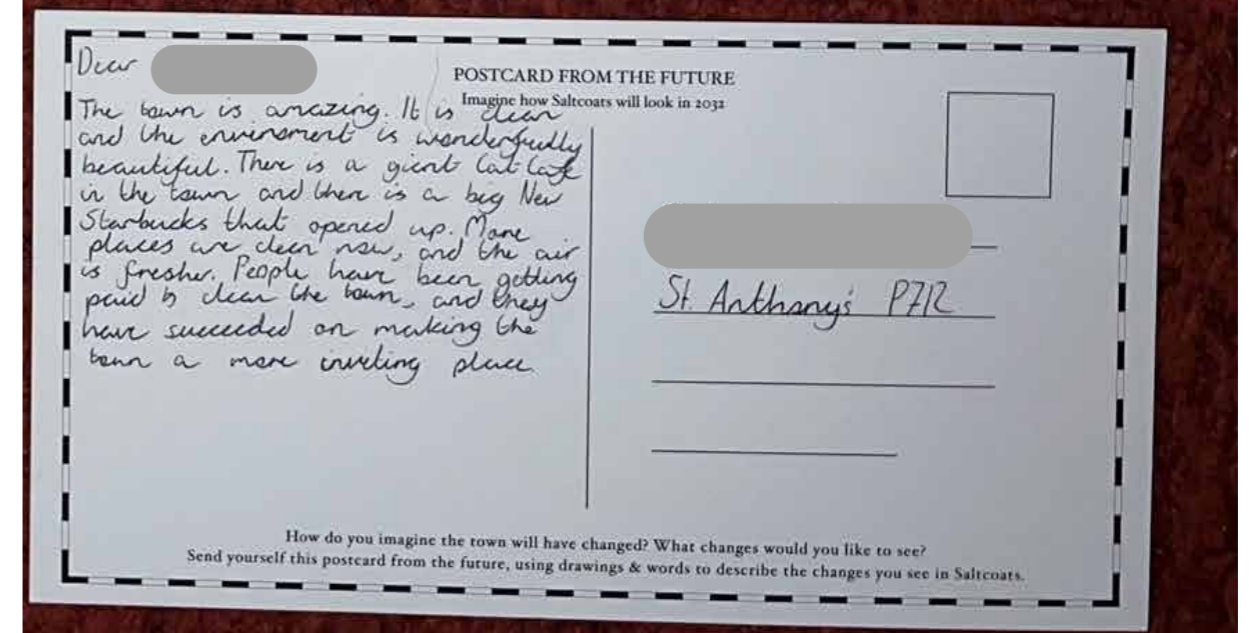 Dear
POSTCARD FROM THE FUTURE
Imagine how Saltcoats will look in 2032
The town is amazing. It is clean
and the enviroment is wonderfully
beautiful. There is a giant Cat Cafe
in the town and there is a big New
Starbucks that opened up. More
places are clean now, and the air
is fresher. People have been getting
paid to clean the town, and they
have succeeded on making the
town a more inviting place
St. Anthony's P7/2
How do you imagine the town will have changed? What changes would you like to see?
Send yourself this postcard from the future, using drawings & words to describe the changes you see in Saltcoats.